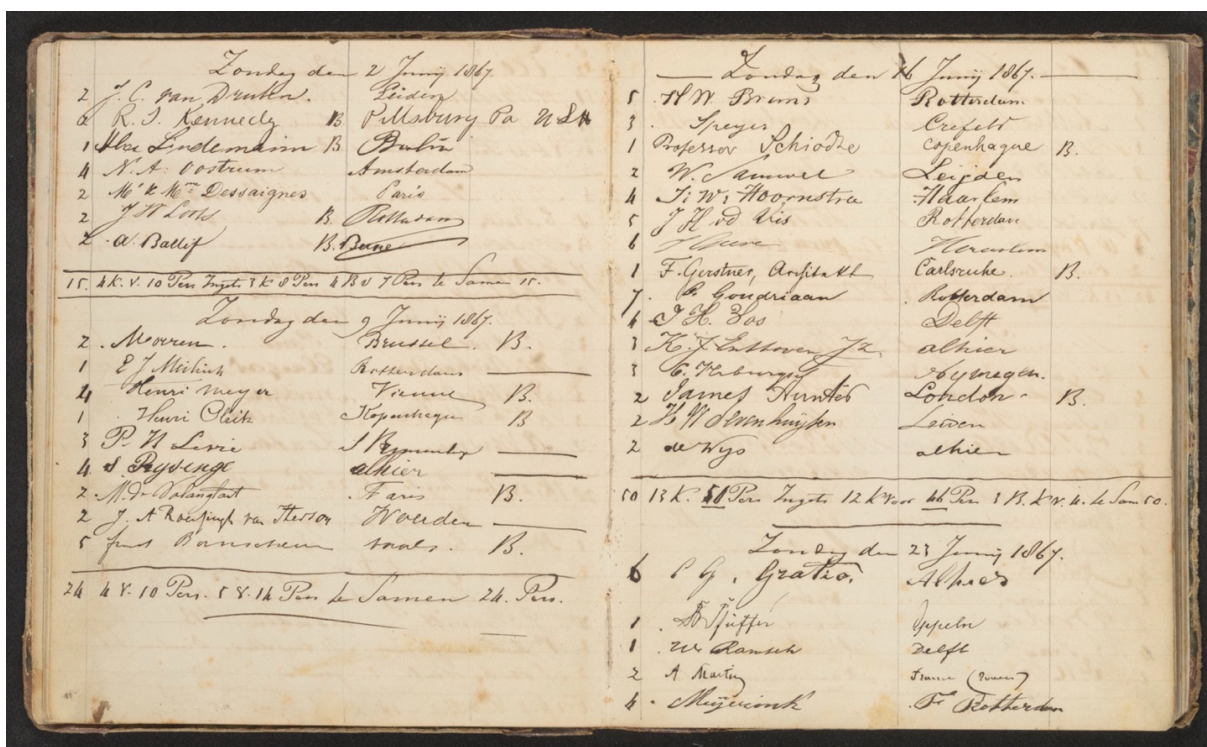 Zondag den 2 Junij 1867.
2 J. C. van Druten. Leiden
2 R. S. Kennedy B Pittsburg Pa USA
1 Lindemann B Berlin
4 N. A. Oostrum Amsterdam
2 Mr & Mme Dessaignes Paris
2 J H B. Rotterdam
2 A. Ballif B. Berne
15. 4 K. v. 10 Pers Ingete 3 K 8 Pers 4 B v 7 Pers te Samen 15.
Zondag den 9 Junij 1867.
2. Morren. Brussel. B.
1 E J Rotterdam
4 Henri Meyer Vienne B.
1 Henri Kopenhagen B
3 P. H Levie
4 S Rysinge alhier
2. M. de B.
2 J. A van Woerden
5 B.
24 4 v. 10 Pers. 5 v. 14 Pers te Samen 24. Pers.
Zondag den 16 Junij 1867.
5 H W. Brems Rotterdam
3. Speyer Crefeld
1 Professor Schiodte Copenhague B.
2 W. Samwel Leijden
4 J. W. Hoornstra Haarlem
5 J H vd Vis Rotterdam
6 Haarlem
1 F. Gerstner, Architekt Carlsruhe. B.
7. P. Goudriaan Rotterdam
4 J H. Vos Delft
3 K. J. Enthoven Jz. alhier
3 C. Verburgt Nymegen.
2 James Hunter London B.
2 H W Leiden
2 de Wijs alhier
50 13 K. 50 Pers Ingete 12 K voor 46 Pers 3 B. K v. 4. te Sam 50.
Zondag den 23 Junij 1867.
6 C G. Gratio, Alhier
1. Pfuffer
1. W. Ramsch Delft
2 A Martin France (Rouen)
4. Meijerink Rotterdam